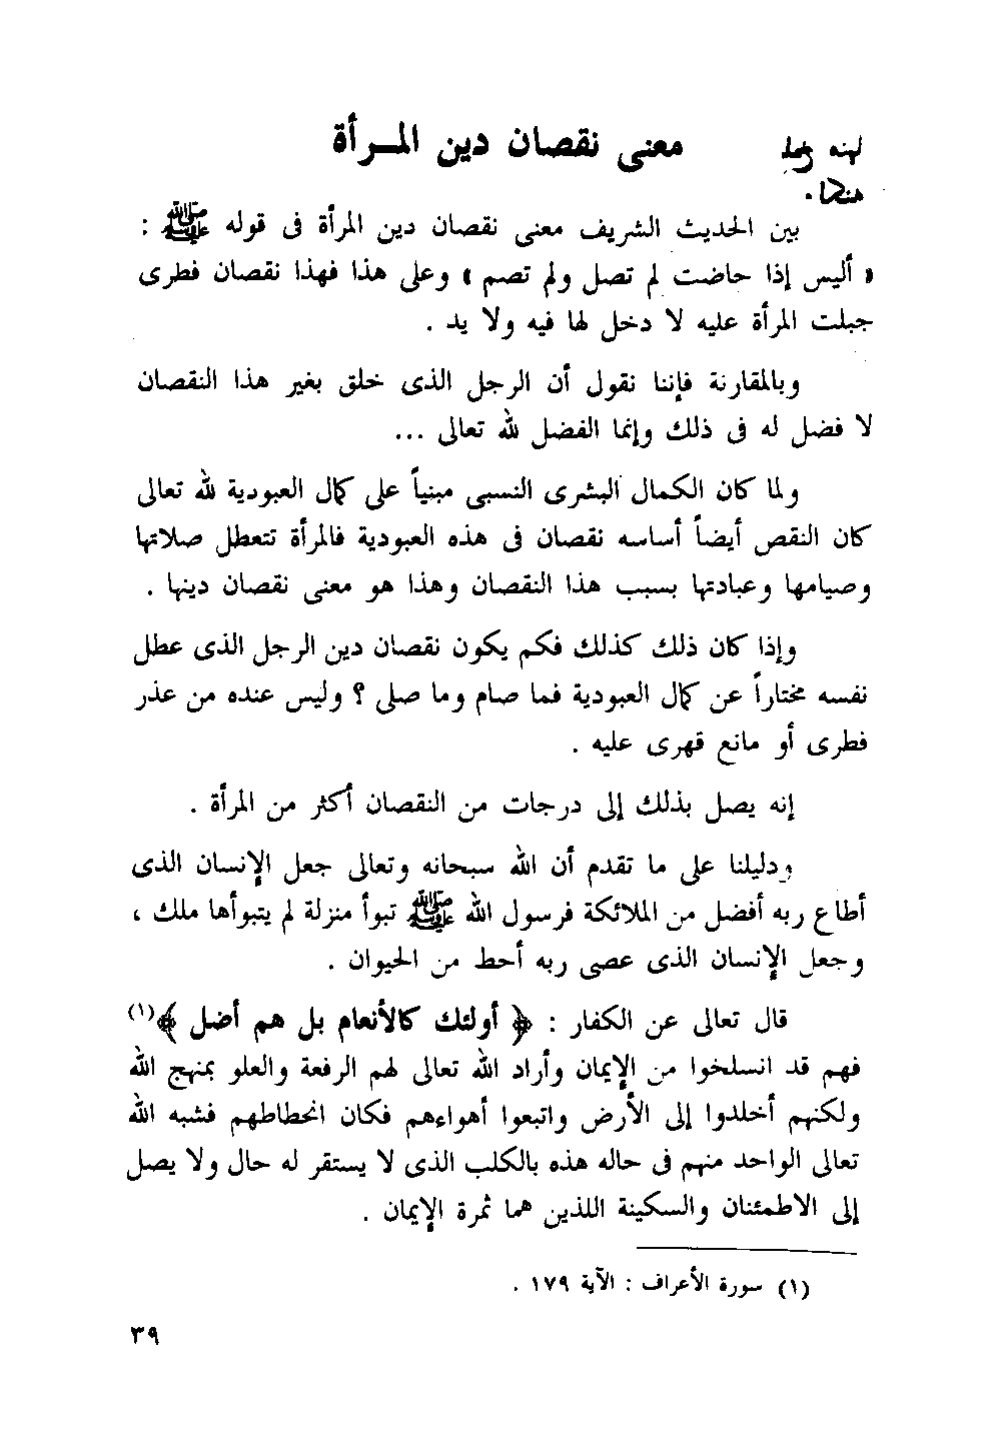 معنى نقصان دين المــرأة
هنا .
بين الحديث الشريف معنى نقصان دين المرأة فى قوله ﷺ :
« أليس إذا حاضت لم تصل ولم تصم » وعلى هذا فهذا نقصان فطرى
جبلت المرأة عليه لا دخل لها فيه ولا يد .
وبالمقارنة فإننا نقول أن الرجل الذى خلق بغير هذا النقصان
لا فضل له فى ذلك وإنما الفضل لله تعالى ...
ولما كان الكمال البشرى النسبى مبنياً على كمال العبودية لله تعالى
كان النقص أيضاً أساسه نقصان فى هذه العبودية فالمرأة تتعطل صلاتها
وصيامها وعبادتها بسبب هذا النقصان وهذا هو معنى نقصان دينها .
وإذا كان ذلك كذلك فكم يكون نقصان دين الرجل الذى عطل
نفسه مختاراً عن كمال العبودية فما صام وما صلى ؟ وليس عنده من عذر
فطرى أو مانع قهرى عليه .
إنه يصل بذلك إلى درجات من النقصان أكثر من المرأة .
ودليلنا على ما تقدم أن الله سبحانه وتعالى جعل الإنسان الذى
أطاع ربه أفضل من الملائكة فرسول الله ﷺ تبوأ منزلة لم يتبوأها ملك ،
وجعل الإنسان الذى عصى ربه أحط من الحيوان .
قال تعالى عن الكفار : ﴿ أولئك كالأنعام بل هم أضل ﴾(١)
فهم قد انسلخوا من الإيمان وأراد الله تعالى لهم الرفعة والعلو بمنهج الله
ولكنهم أخلدوا إلى الأرض واتبعوا أهواءهم فكان انحطاطهم فشبه الله
تعالى الواحد منهم فى حاله هذه بالكلب الذى لا يستقر له حال ولا يصل
إلى الاطمئنان والسكينة اللذين هما ثمرة الإيمان .
(١) سورة الأعراف : الآية ١٧٩ .
٣٩